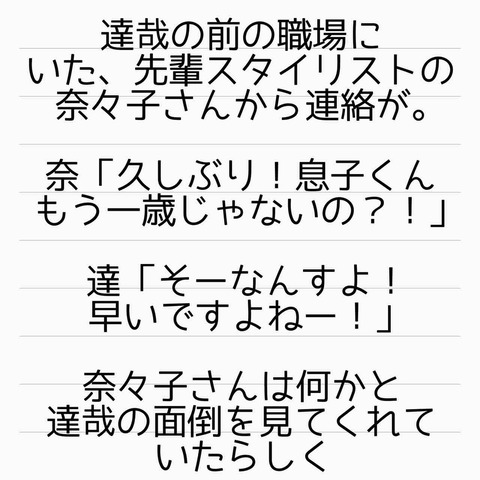 達哉の前の職場に
いた、先輩スタイリストの
奈々子さんから連絡が。
奈「久しぶり！息子くん
もう一歳じゃないの？！」
達「そーなんすよ！
早いですよねー！」
奈々子さんは何かと
達哉の面倒を見てくれて
いたらしく